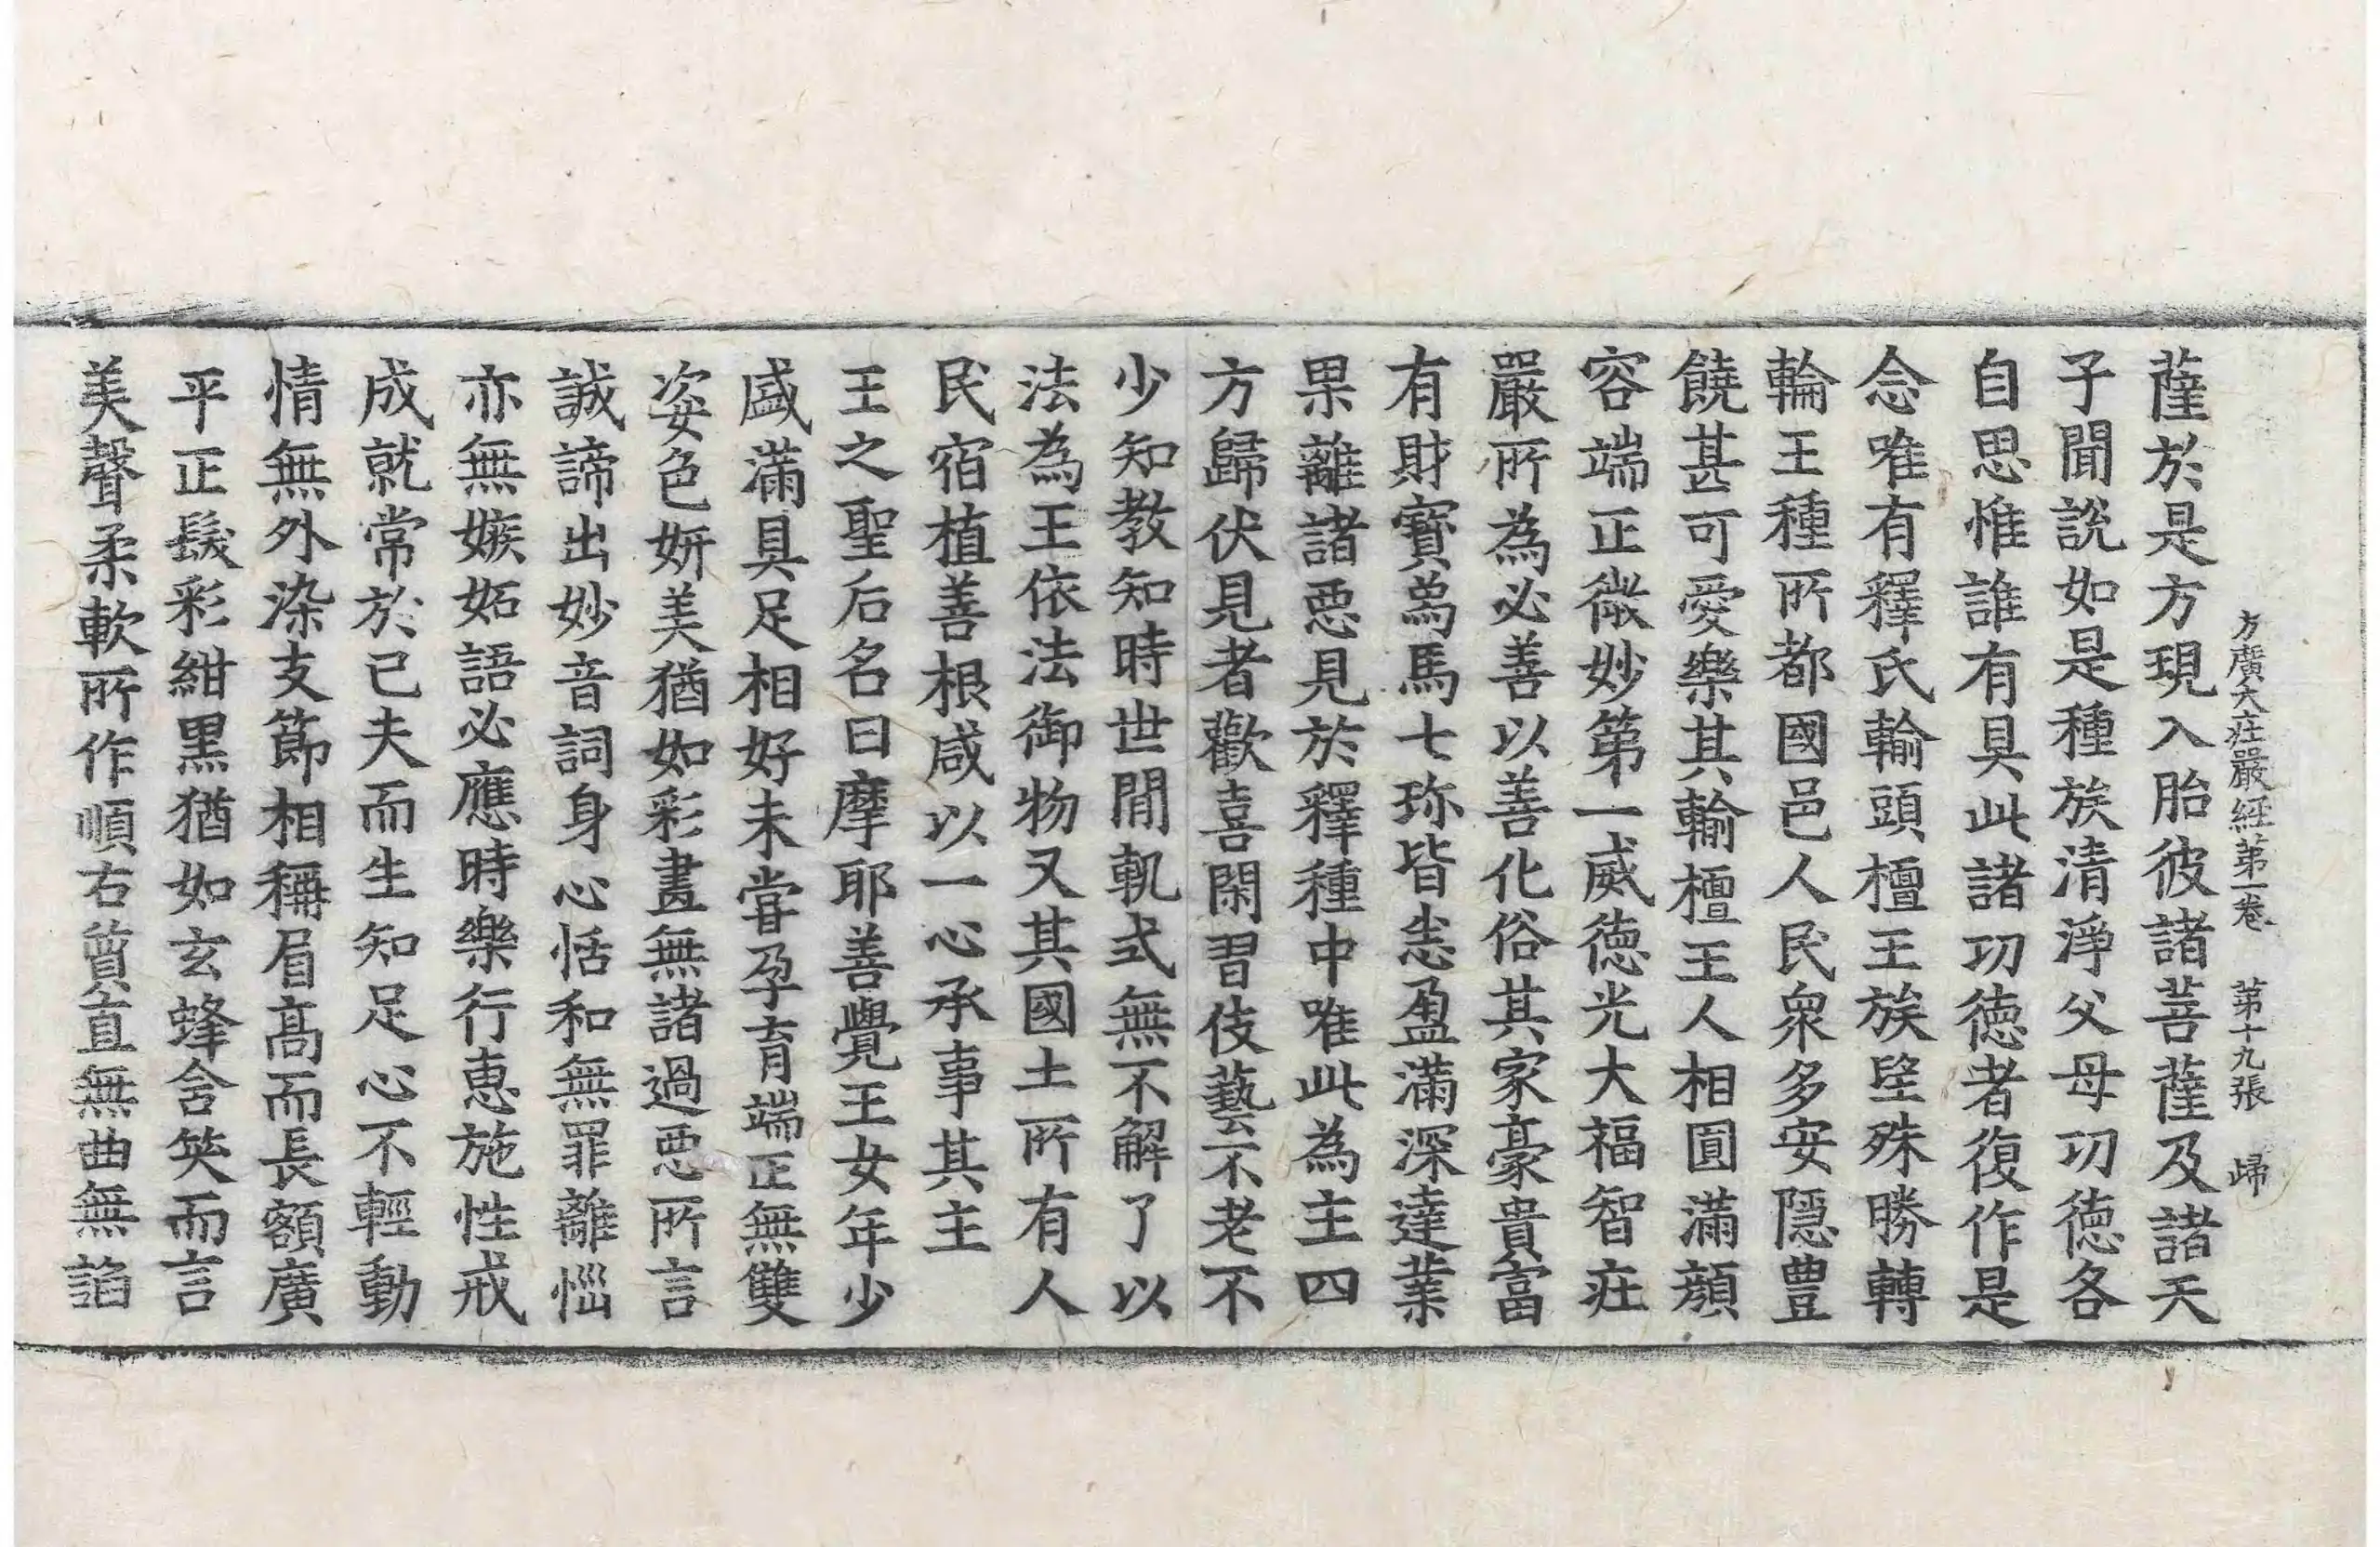 方廣大庄嚴經第一卷　第十九張　歸
薩於是方現入胎彼諸菩薩及諸天
子聞說如是種族清淨父母功德各
自思惟誰有具此諸功德者復作是
念唯有釋氏輸頭檀王族望殊勝轉
輪王種所都國邑人民衆多安隱豊
饒甚可愛樂其輸檀王人相圓滿顔
容端正微妙第一威德光大福智庄
嚴所為必善以善化俗其家豪貴富
有財寶爲馬七珎皆悉盈滿深達業
果離諸惡見於釋種中唯此為主四
方歸伏見者歡喜閑習伎藝不老不
少知教知時世閒軌式無不解了以
法為王依法御物又其國土所有人
民宿植善根咸以一心承事其主
王之聖后名曰摩耶善覺王女年少
盛滿具足相好未甞孕育端正無雙
姿色妍美猶如彩畫無諸過惡所言
誠諦出妙音詞身心恬和無罪離惱
亦無嫉妬語必應時樂行惠施性戒
成就常於己夫而生知足心不輕動
情無外染支節相稱眉高而長額廣
平正髮彩紺黑猶如玄蜂含笑而言
美聲柔軟所作順右質直無曲無諂